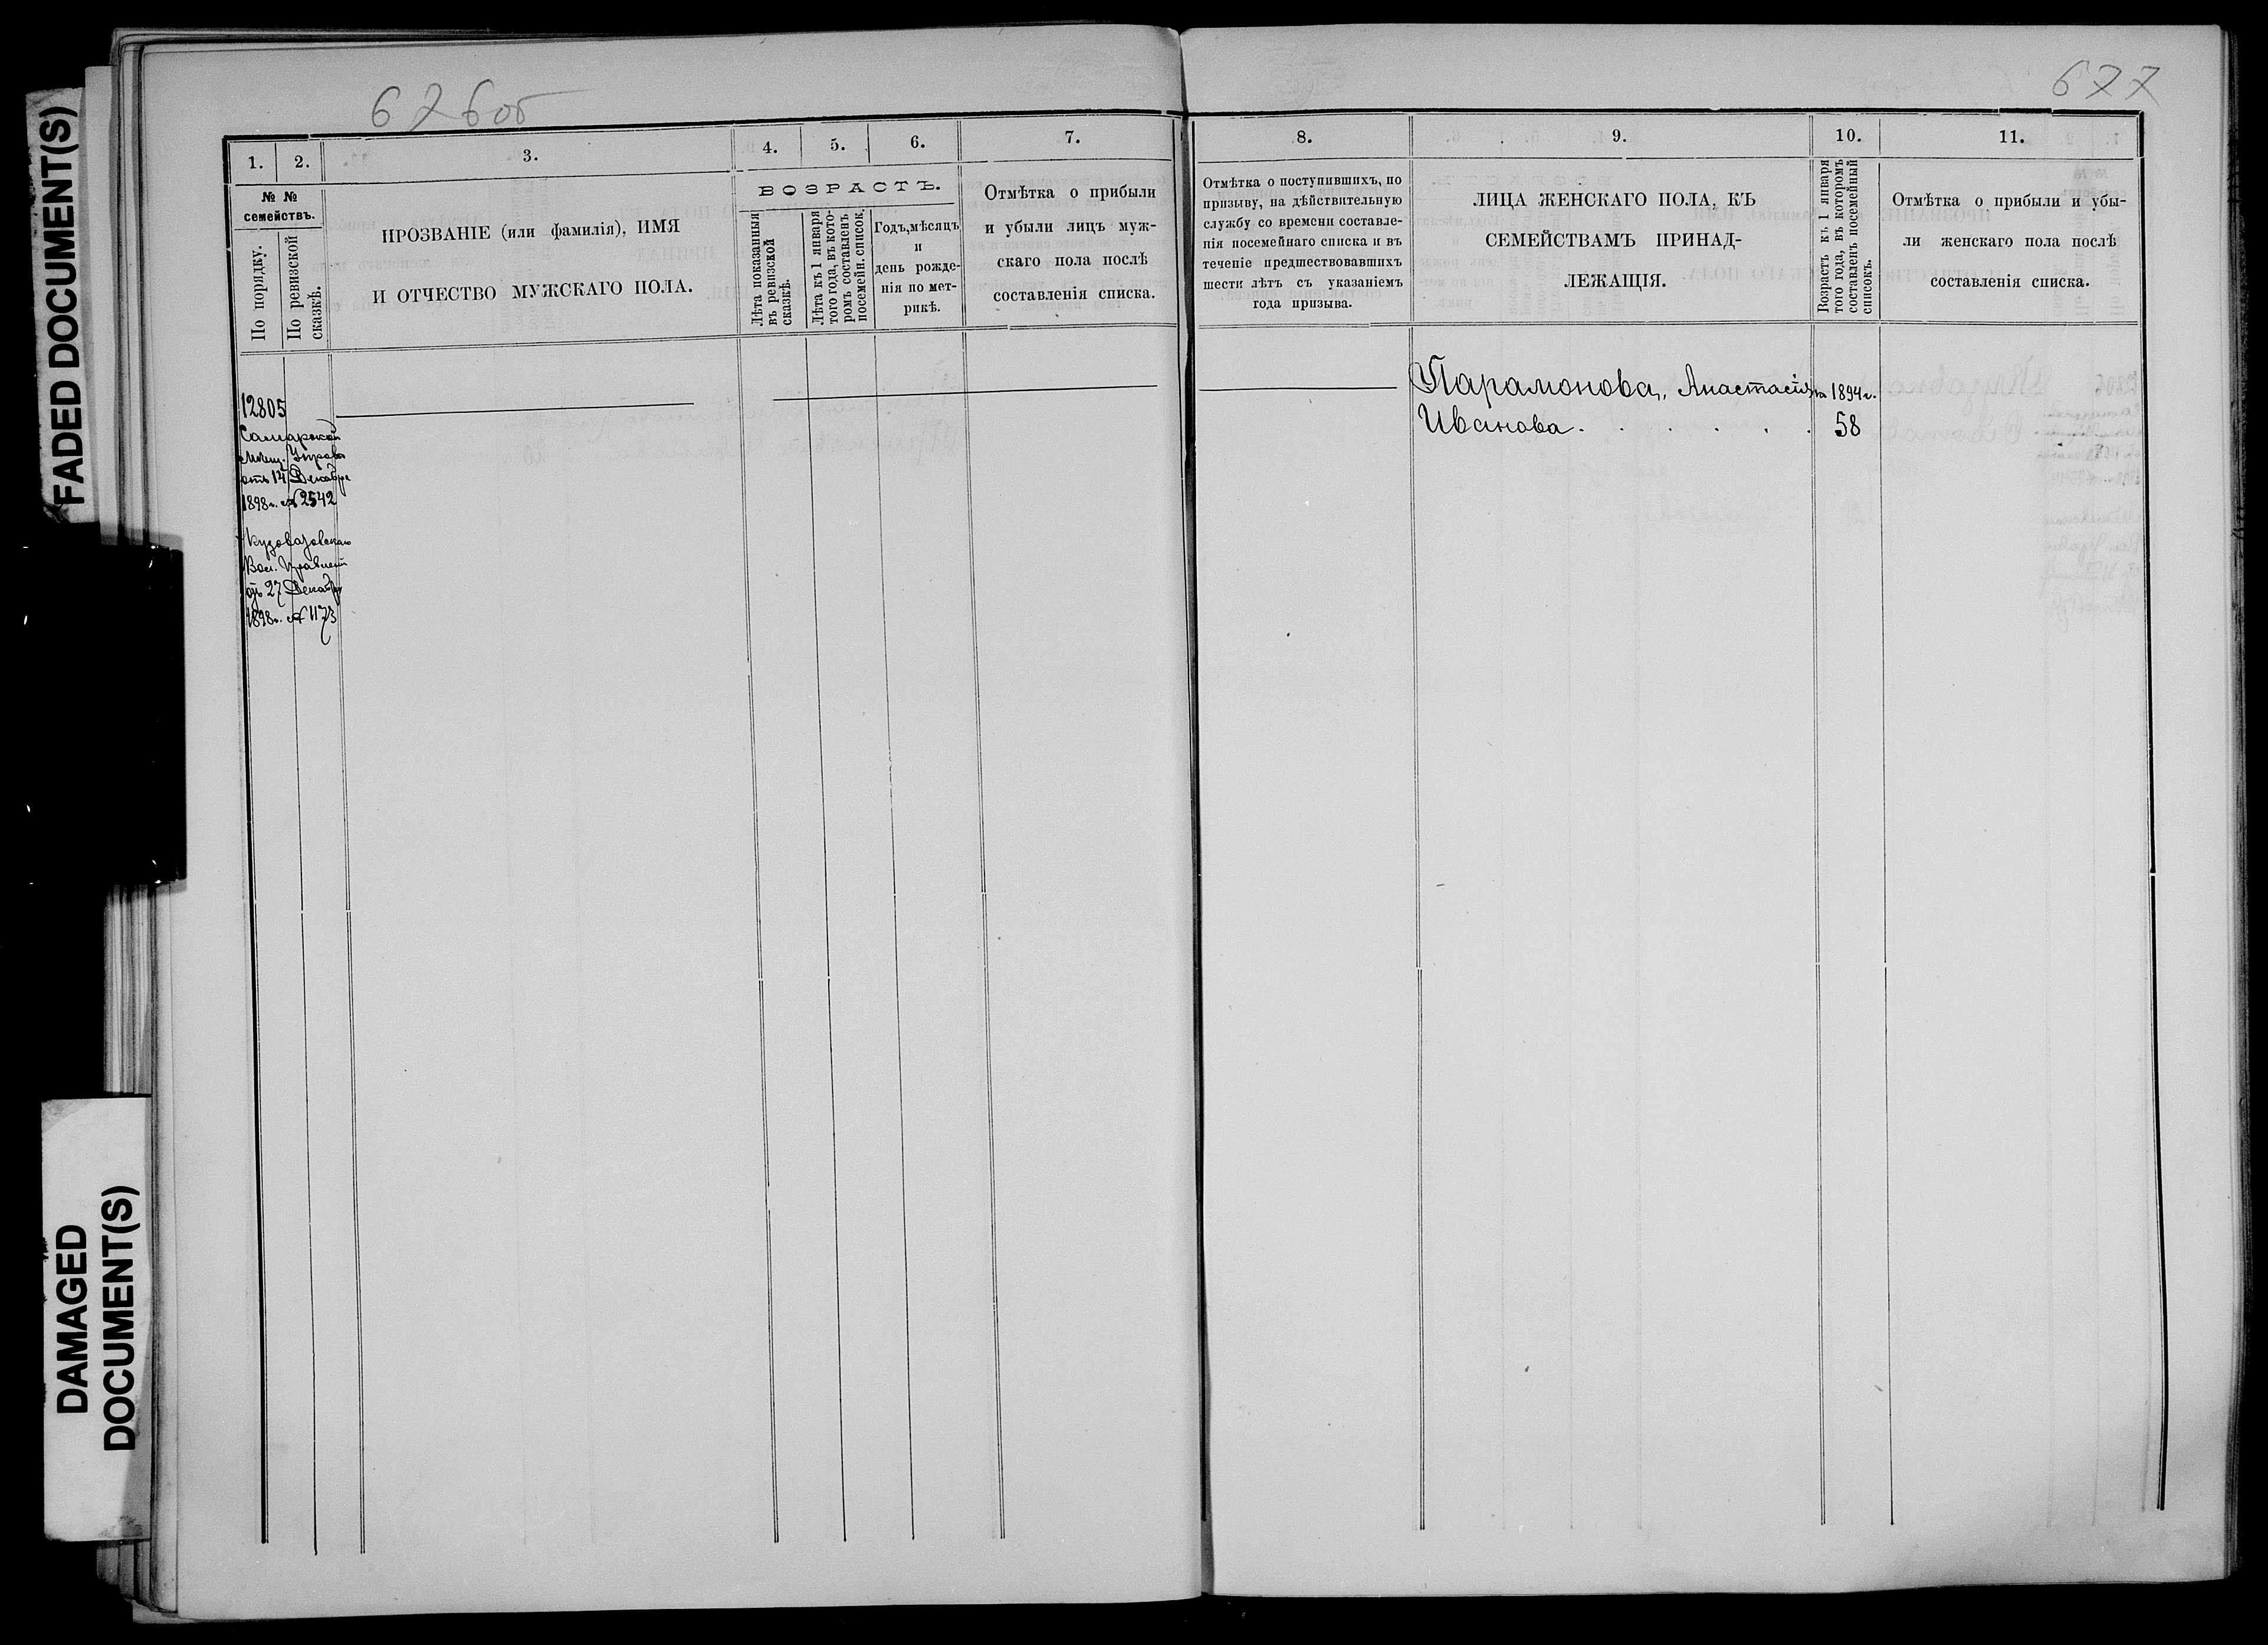 FADED DOCUMENT(S)
DAMAGED
DOCUMENT(S)
676об
1. 2. 3. 4. 5. 6. 7.
№ №
семействъ.
По порядку.
По ревизской
сказкѣ.
ПРОЗВАНІЕ (или фамилія), ИМЯ
И ОТЧЕСТВО МУЖСКАГО ПОЛА.
ВОЗРАСТЪ.
Лѣта показанныя
въ ревизской
сказкѣ.
Лѣта къ 1 января
того года, въ кото-
ромъ составленъ
посемейн. списокъ.
Годъ, мѣсяцъ
и
день рожде-
нія по мет-
рикѣ.
Отмѣтка о прибыли
и убыли лицъ муж-
скаго пола послѣ
составленія списка.
12805
Самарской
Мѣщ. Управы
отъ 14 Декабря
1898 г. № 2542
Вол. Правленія
отъ 27 Декабря
1898 г. № 1173
677
8. 9. 10. 11.
Отмѣтка о поступившихъ, по
призыву, на дѣйствительную
службу со времени составле-
нія посемейнаго списка и въ
теченіе предшествовавшихъ
шести лѣтъ съ указаніемъ
года призыва.
ЛИЦА ЖЕНСКАГО ПОЛА, КЪ
СЕМЕЙСТВАМЪ ПРИНАД-
ЛЕЖАЩІЯ.
Возрастъ къ 1 января
того года, въ которомъ
составленъ посемейный
списокъ.
Отмѣтка о прибыли и убы-
ли женскаго пола послѣ
составленія списка.
Парамонова, Анастасія на 1894 г.
Иванова. . . . . . 58